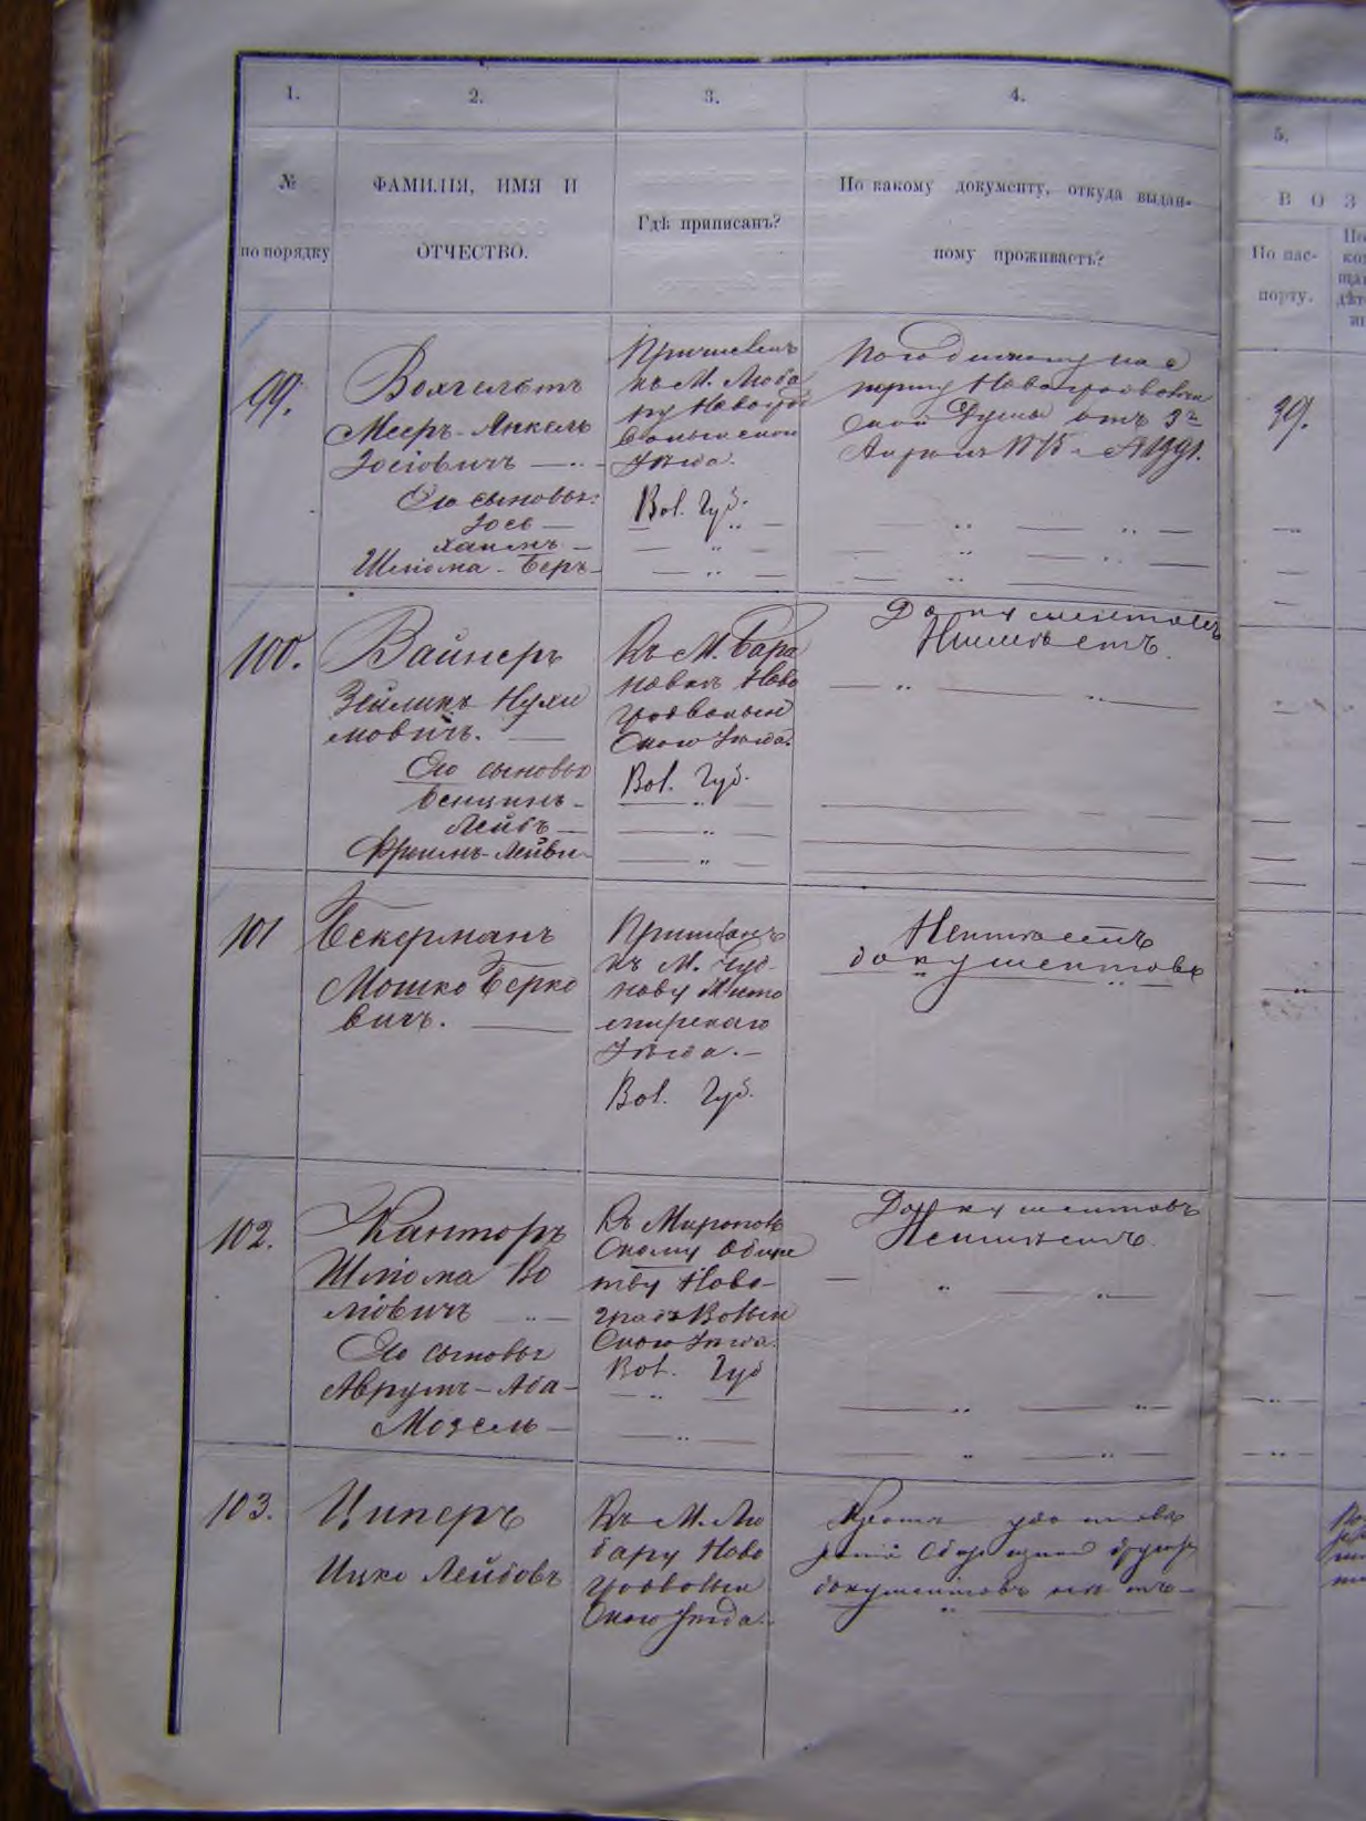 1.
2.
3.
4.
5.
№
по порядку
ФАМИЛІЯ, ИМЯ И
ОТЧЕСТВО.
Гдѣ приписанъ?
По какому документу, откуда выдан-
ному проживаетъ?
В О З
По пас-
порту.
99.
Мееръ-Янкель
Іосіовичъ
Его сыновья:
Іось
Хаимъ
Шліома-Беръ
къ М. Люба
ру Новогра
Уѣзда.
Вол. Губ.
Думы отъ 3го
39.
100.
Вайнеръ
Зейликъ Нухи
мовичъ.
Его сыновья
Бенционъ
Лейбъ
Къ М. Бара
новкѣ Ново
градволын
скаго Уѣзда.
Вол. Губ.
Документовъ
Неимѣетъ.
101
Бекерманъ
Мошко Берко
вичъ.
Приписанъ
къ М. Чуд-
нову Жито
мирскаго
Уѣзда.
Вол. Губ.
Неимѣетъ
документовъ
102.
Канторъ
Шліома Во
ліовичъ
Его сыновья
Аврумъ-Аба
Мозель
Къ Миропол
скому Обще
тву Ново-
градъ Волын
скаго Уѣзда.
Вол. Губ
Документовъ
Неимѣетъ.
103.
Циперъ
Ицко Лейбовъ
Къ М. Лю
бару Ново
градволын
скаго уѣзда.
документовъ